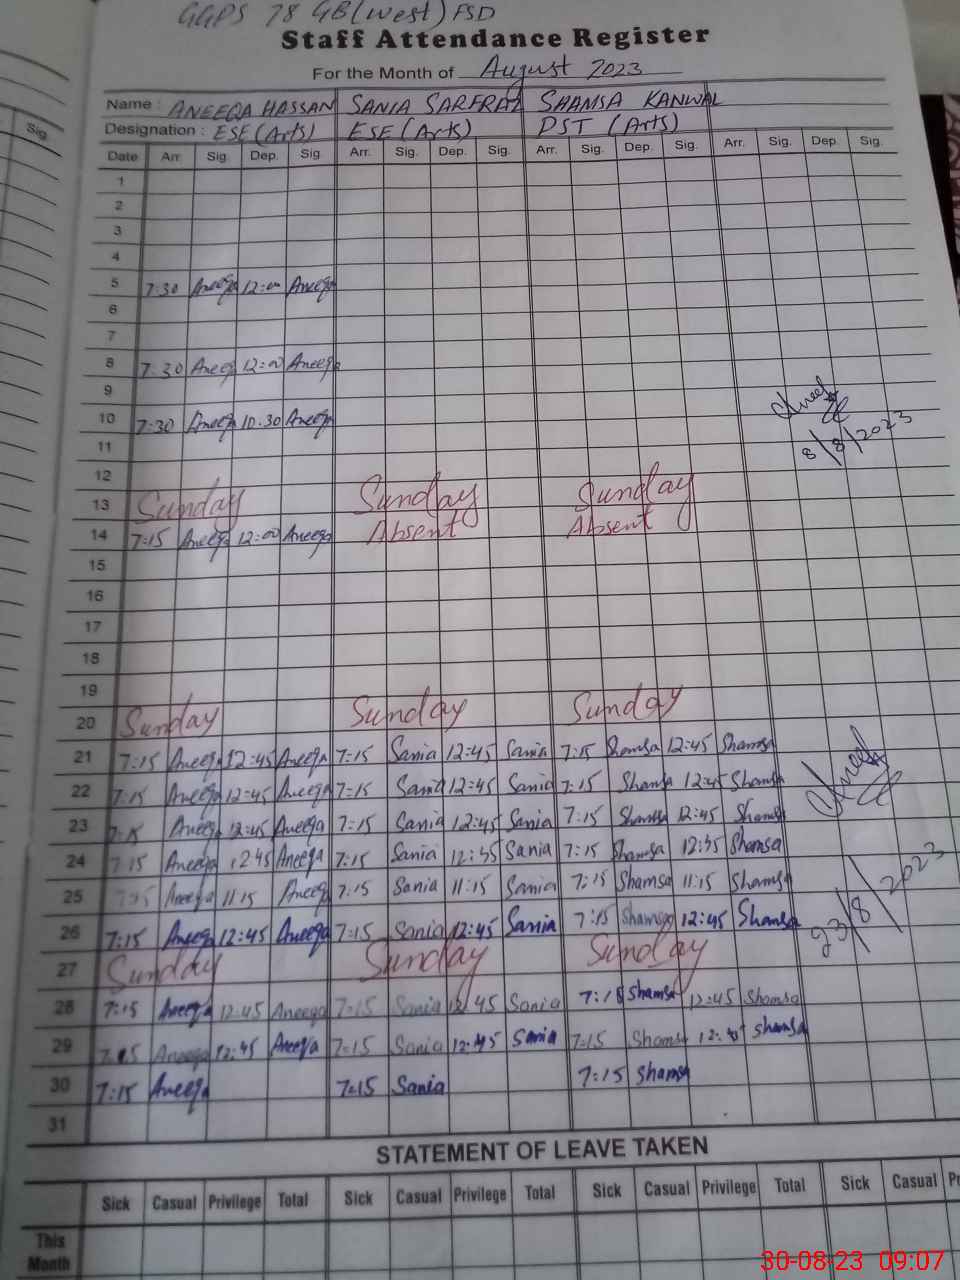 GGPS 78 GB(West) FSD
Staff Attendance Register
For the Month of August 2023
Sig.
Name : ANEEQA HASSAN SANIA SARFRAZ SHAMSA KANWAL
Designation : ESE (Arts) ESE (Arts) PST (Arts)
Date Arr. Sig. Dep. Sig. Arr. Sig. Dep. Sig. Arr. Sig. Dep. Sig. Arr. Sig. Dep. Sig.
1
2
3
4
5 7:30 Aneeqa 12:00 Aneeqa
6
7
8 7:30 Aneeqa 12:00 Aneeqa
9
10 7:30 Aneeqa 10:30 Aneeqa
11 8/8/2023
12
13 Sunday Sunday Sunday
14 7:15 Aneeqa 12:00 Aneeqa Absent Absent
15
16
17
18
19
20 Sunday Sunday Sunday
21 7:15 Aneeqa 12:45 Aneeqa 7:15 Sania 12:45 Sania 7:15 Shamsa 12:45 Shamsa
22 7:15 Aneeqa 12:45 Aneeqa 7:15 Sania 12:45 Sania 7:15 Shamsa 12:45 Shamsa
23 7:15 Aneeqa 12:45 Aneeqa 7:15 Sania 12:45 Sania 7:15 Shamsa 12:45 Shamsa
24 7:15 Aneeqa 12:45 Aneeqa 7:15 Sania 12:45 Sania 7:15 Shamsa 12:45 Shamsa
25 7:15 Aneeqa 11:15 Aneeqa 7:15 Sania 11:15 Sania 7:15 Shamsa 11:15 Shamsa
26 7:15 Aneeqa 12:45 Aneeqa 7:15 Sania 12:45 Sania 7:15 Shamsa 12:45 Shamsa 23/8/2023
27 Sunday Sunday Sunday
28 7:15 Aneeqa 12:45 Aneeqa 7:15 Sania 12:45 Sania 7:15 Shamsa 12:45 Shamsa
29 7:15 Aneeqa 12:45 Aneeqa 7:15 Sania 12:45 Sania 7:15 Shamsa 12:45 Shamsa
30 7:15 Aneeqa 7:15 Sania 7:15 Shamsa
31
STATEMENT OF LEAVE TAKEN
Sick Casual Privilege Total Sick Casual Privilege Total Sick Casual Privilege Total Sick Casual Pr
This
Month
30-08-23 09:07